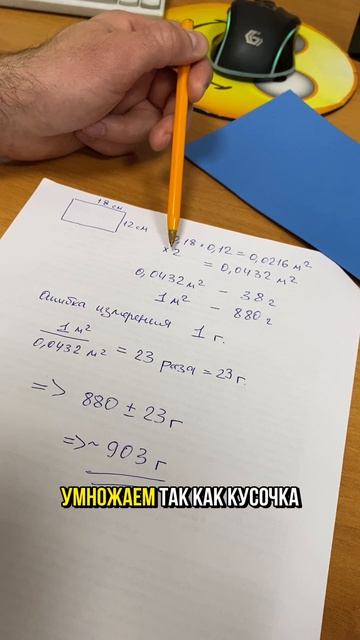 18 см
12 см
0,18 * 0,12 = 0,0216 м²
x 2 = 0,0432 м²
0,0432 м² - 38 г
1 м² - 880 г
Ошибка измерения 1 г.
1 м²
0,0432 м² = 23 раза = 23 г.
=> 880 ± 23 г
=> ~ 903 г
УМНОЖАЕМ ТАК КАК КУСОЧКА